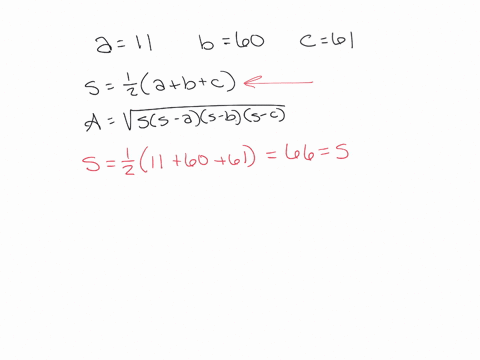 a = 11 b = 60 c = 61
s = 1/2 (a + b + c) ←
A = √s(s-a)(s-b)(s-c)
S = 1/2 (11 + 60 + 61) = 66 = S